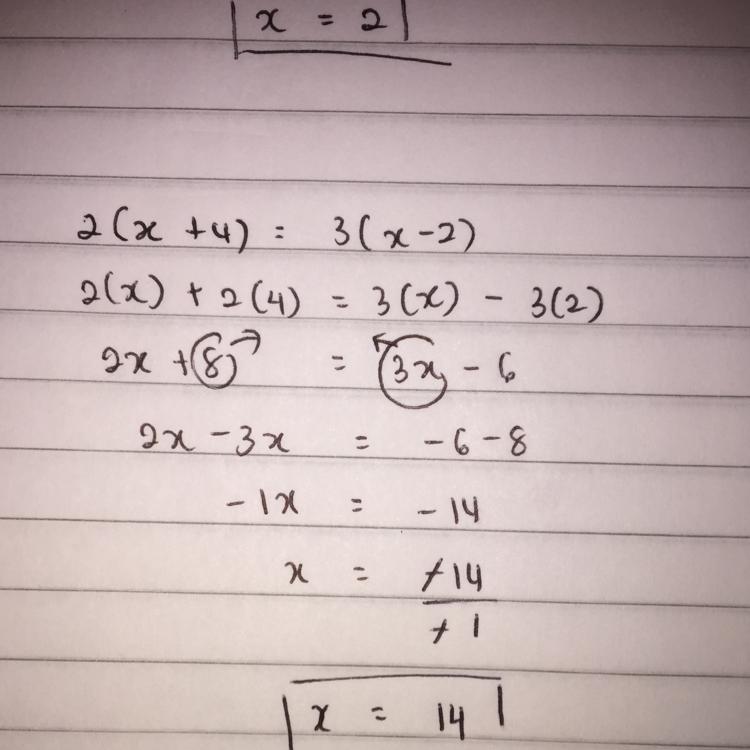 x = 2
2(x + 4) = 3(x - 2)
2(x) + 2(4) = 3(x) - 3(2)
2x + 8 = 3x - 6
2x - 3x = -6 - 8
-1x = -14
x = -14
-1
x = 14